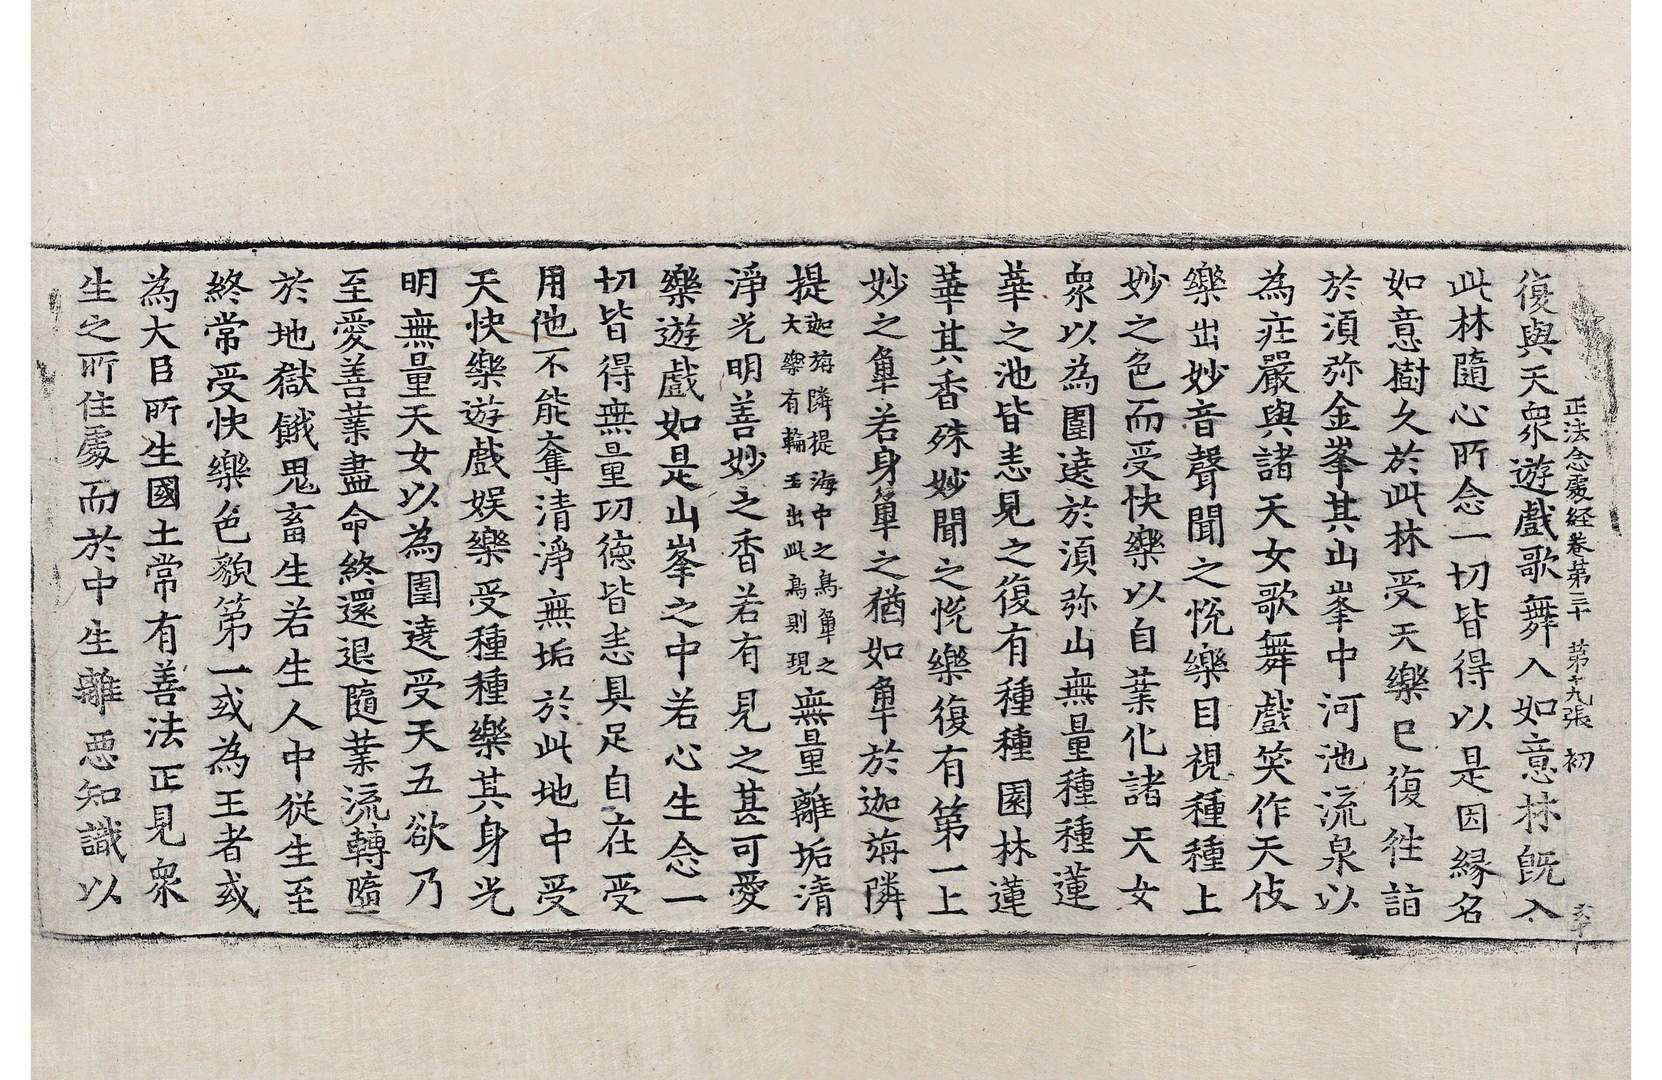 正法念處経卷第三十 第十九張 初
復與天衆遊戲歌舞入如意林旣入
此林隨心所念一切皆得以是因緣名
如意樹久於此林受天樂已復往詣
於湏弥金峯其山峯中河池流泉以
為莊嚴與諸天女歌舞戲笑作天伎
樂出妙音聲聞之恱樂目視種種上
妙之色而受快樂以自業化諸天女
衆以為圍遶於湏弥山無量種種蓮
華之池皆悉見之復有種種園林蓮
華其香殊妙聞之恱樂復有第一上
妙之鳥若身鳥之猶如鳥於迦旃隣
提迦旃隣提海中之鳥觸之大樂有輪王出此鳥則現無量離垢清
淨光明善妙之香若有見之甚可愛
樂遊戲如是山峯之中若心生念一
切皆得無量功徳皆悉具足自在受
用他不能奪清淨無垢於此地中受
天快樂遊戲娛樂受種種樂其身光
明無量天女以為圍遶受天五欲乃
至愛善業盡命終還退隨業流轉墮
於地獄餓鬼畜生若生人中従生至
終常受快樂色貌第一或為王者或
為大臣所生國土常有善法正見衆
生之所住處而於中生離惡知識以